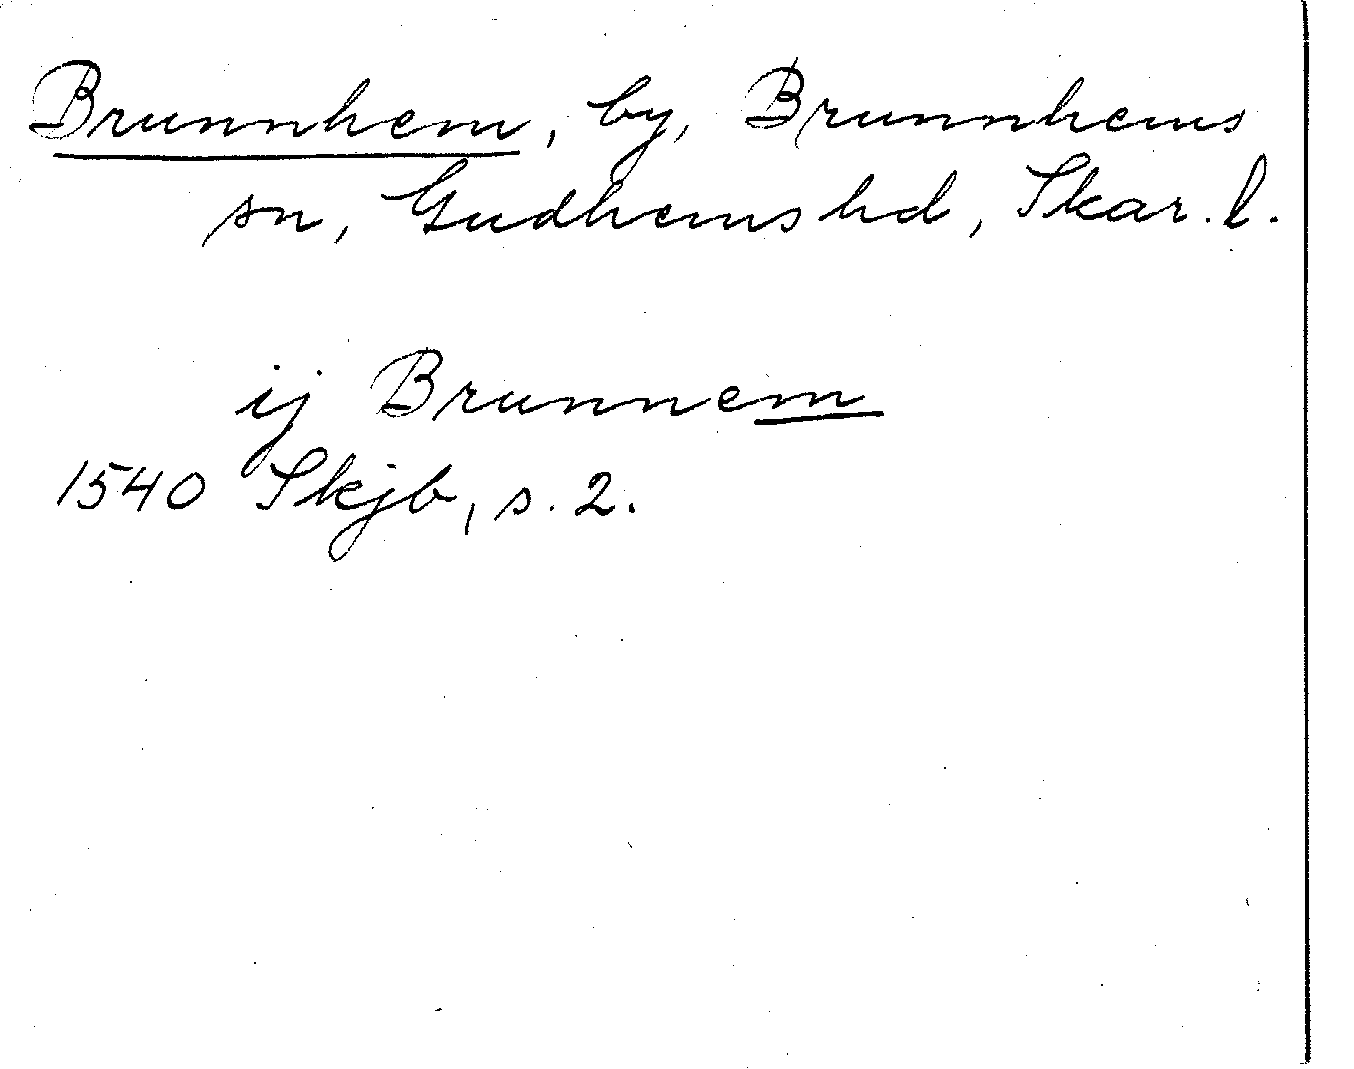 Brunnhem, by, Brunnhems
sn, Gudhems hd, Skar. l.
ij Brunnem
1540 Skjb, s. 2.